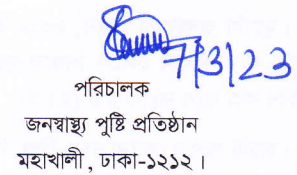 7/3/23
পরিচালক
জনস্বাস্থ্য পুষ্টি প্রতিষ্ঠান
মহাখালী, ঢাকা-১২১২।